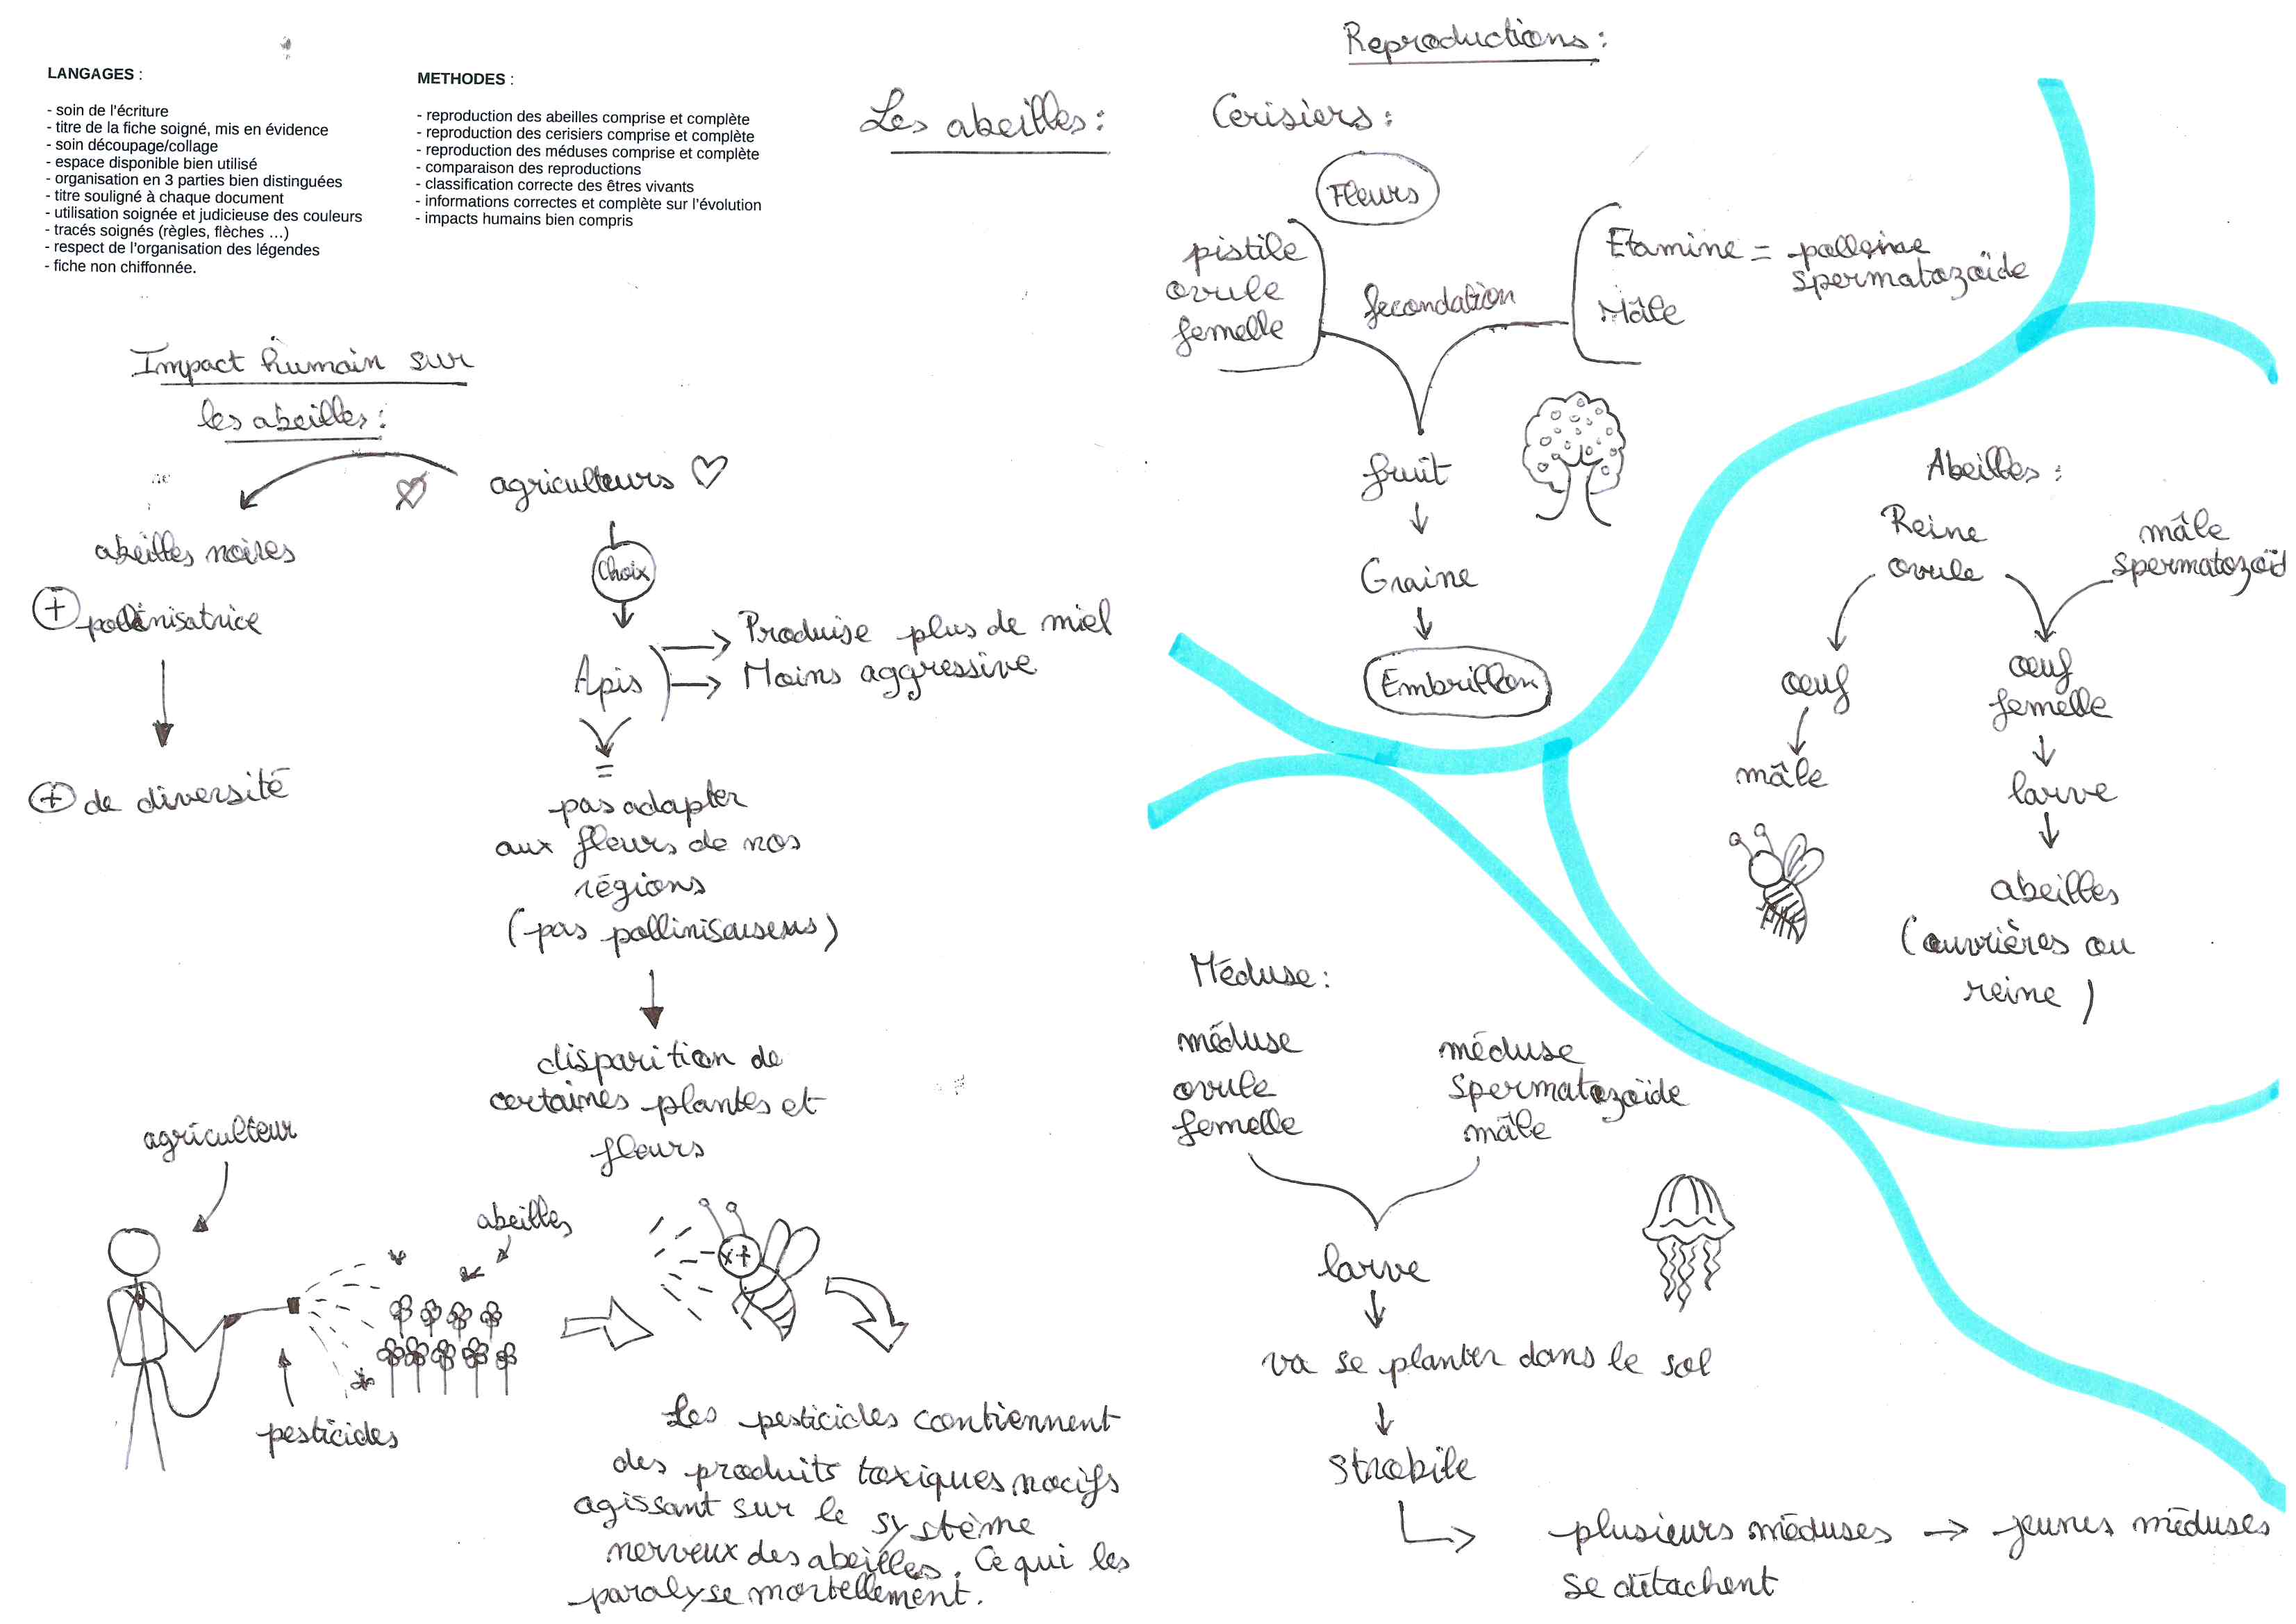 LANGAGES :
- soin de l'écriture
- titre de la fiche soigné, mis en évidence
- soin découpage/collage
- espace disponible bien utilisé
- organisation en 3 parties bien distinguées
- titre souligné à chaque document
- utilisation soignée et judicieuse des couleurs
- tracés soignés (règles, flèches ...)
- respect de l'organisation des légendes
- fiche non chiffonnée.
METHODES :
- reproduction des abeilles comprise et complète
- reproduction des cerisiers comprise et complète
- reproduction des méduses comprise et complète
- comparaison des reproductions
- classification correcte des êtres vivants
- informations correctes et complète sur l'évolution
- impacts humains bien compris
Les abeilles :
Impact humain sur
les abeilles :
agriculteurs
abeilles noires
+ pollénisatrice
+ de diversité
Choix
Apis
Produise plus de miel
Moins aggressive
=
pas adapter
aux fleurs de nos
régions
(pas polliniseuseus)
disparition de
certaines plantes et
fleurs
agriculteur
abeilles
pesticides
Les pesticides contiennent
des produits toxiques nocifs
agissant sur le système
nerveux des abeilles. Ce qui les
paralyse mortellement.
Reproductions :
Cerisiers :
Fleurs
pistile
ovule
femelle
fecondation
Etamine = polleine
spermatozoïde
Mâle
fruit
Graine
Embrillon
Abeilles :
Reine
ovule
mâle
spermatozoïd
œuf
mâle
œuf
femelle
larve
abeilles
(ouvrières ou
reine)
Méduse :
méduse
ovule
femelle
méduse
spermatozoïde
mâle
larve
va se planter dans le sol
strobile
plusieurs méduses → jeunes méduses
se détachent